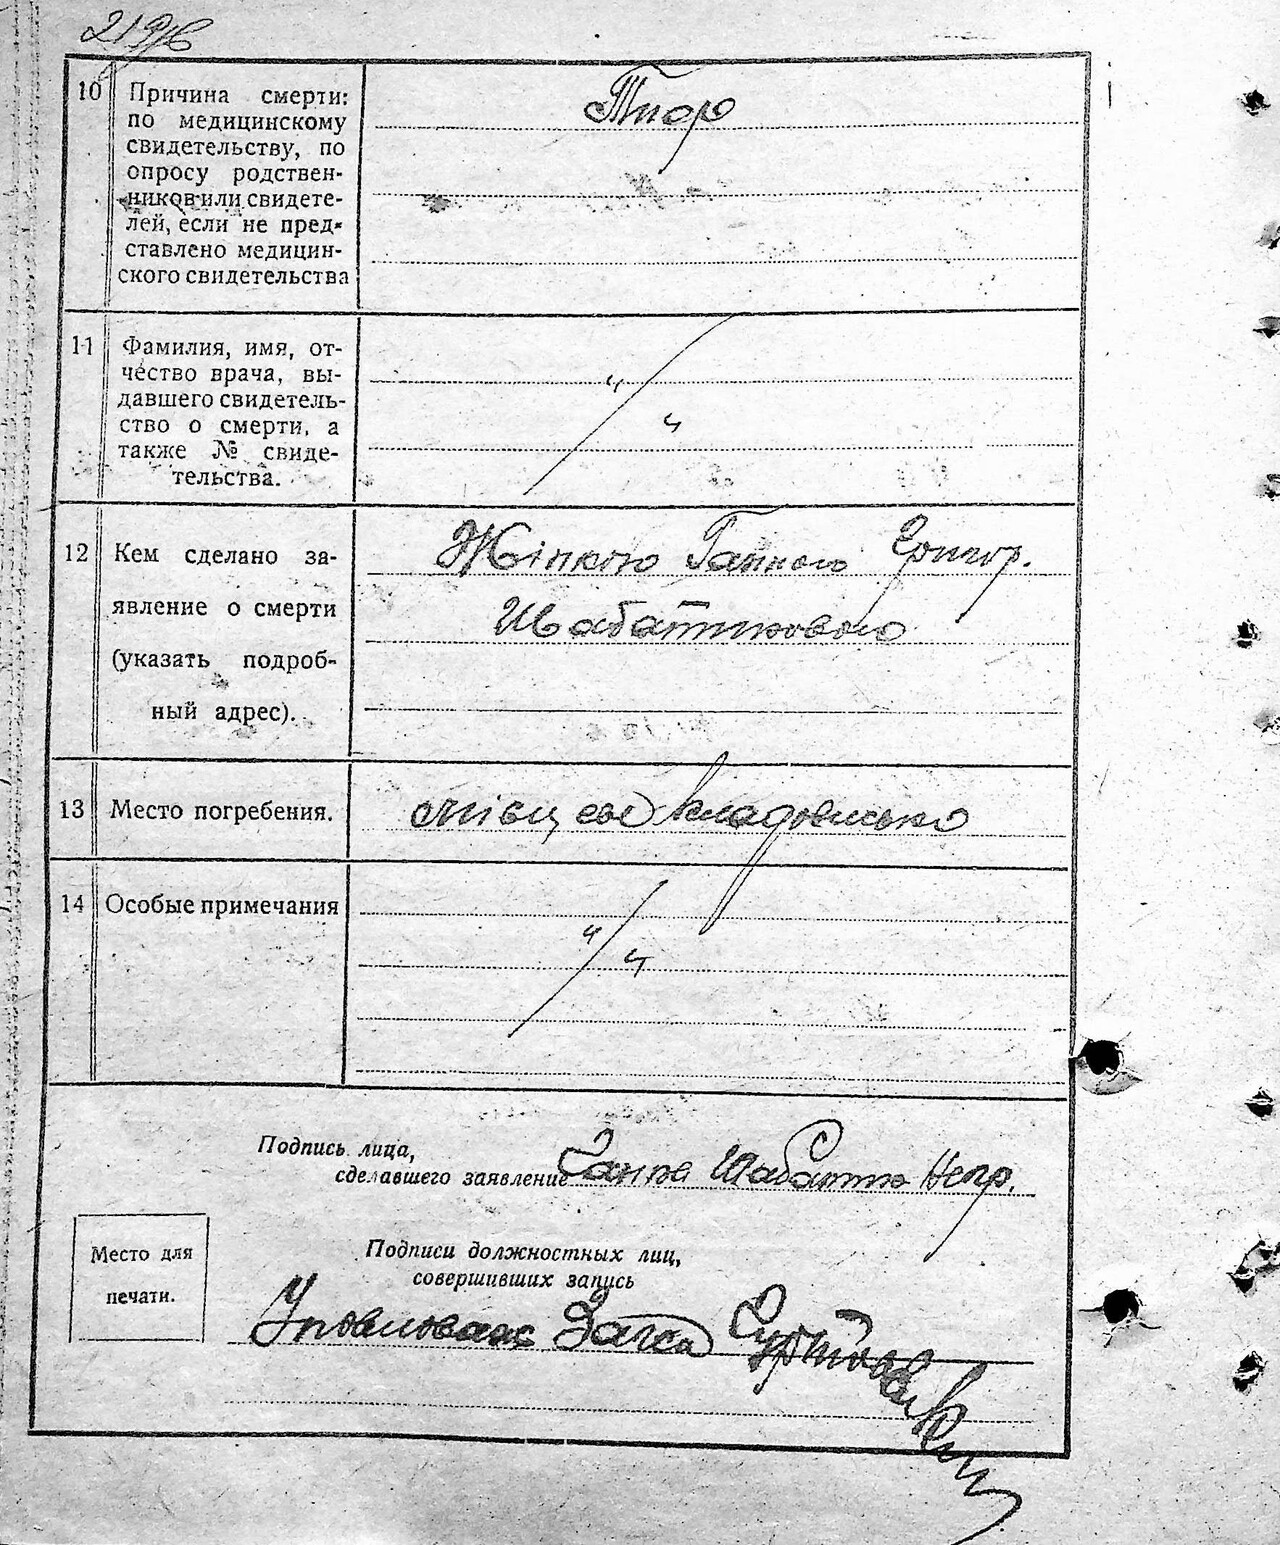 10 Причина смерти:
по медицинскому
свидетельству, по
опросу родствен-
ников или свидете-
лей, если не пред-
ставлено медицин-
ского свидетельства
11 Фамилия, имя, от-
чество врача, вы-
давшего свидетель-
ство о смерти, а
также № свиде-
тельства.
" "
12 Кем сделано за-
явление о смерти
(указать подроб-
ный адрес).
Жінкою Ганною Григор.
Шабатковою
13 Место погребения.
місцеве кладовисько
14 Особые примечания
" "
Подпись лица,
сделавшего заявление
Шабатко Непр.
Место для
печати.
Подписи должностных лиц,
совершивших запись
Уповноваж Загса